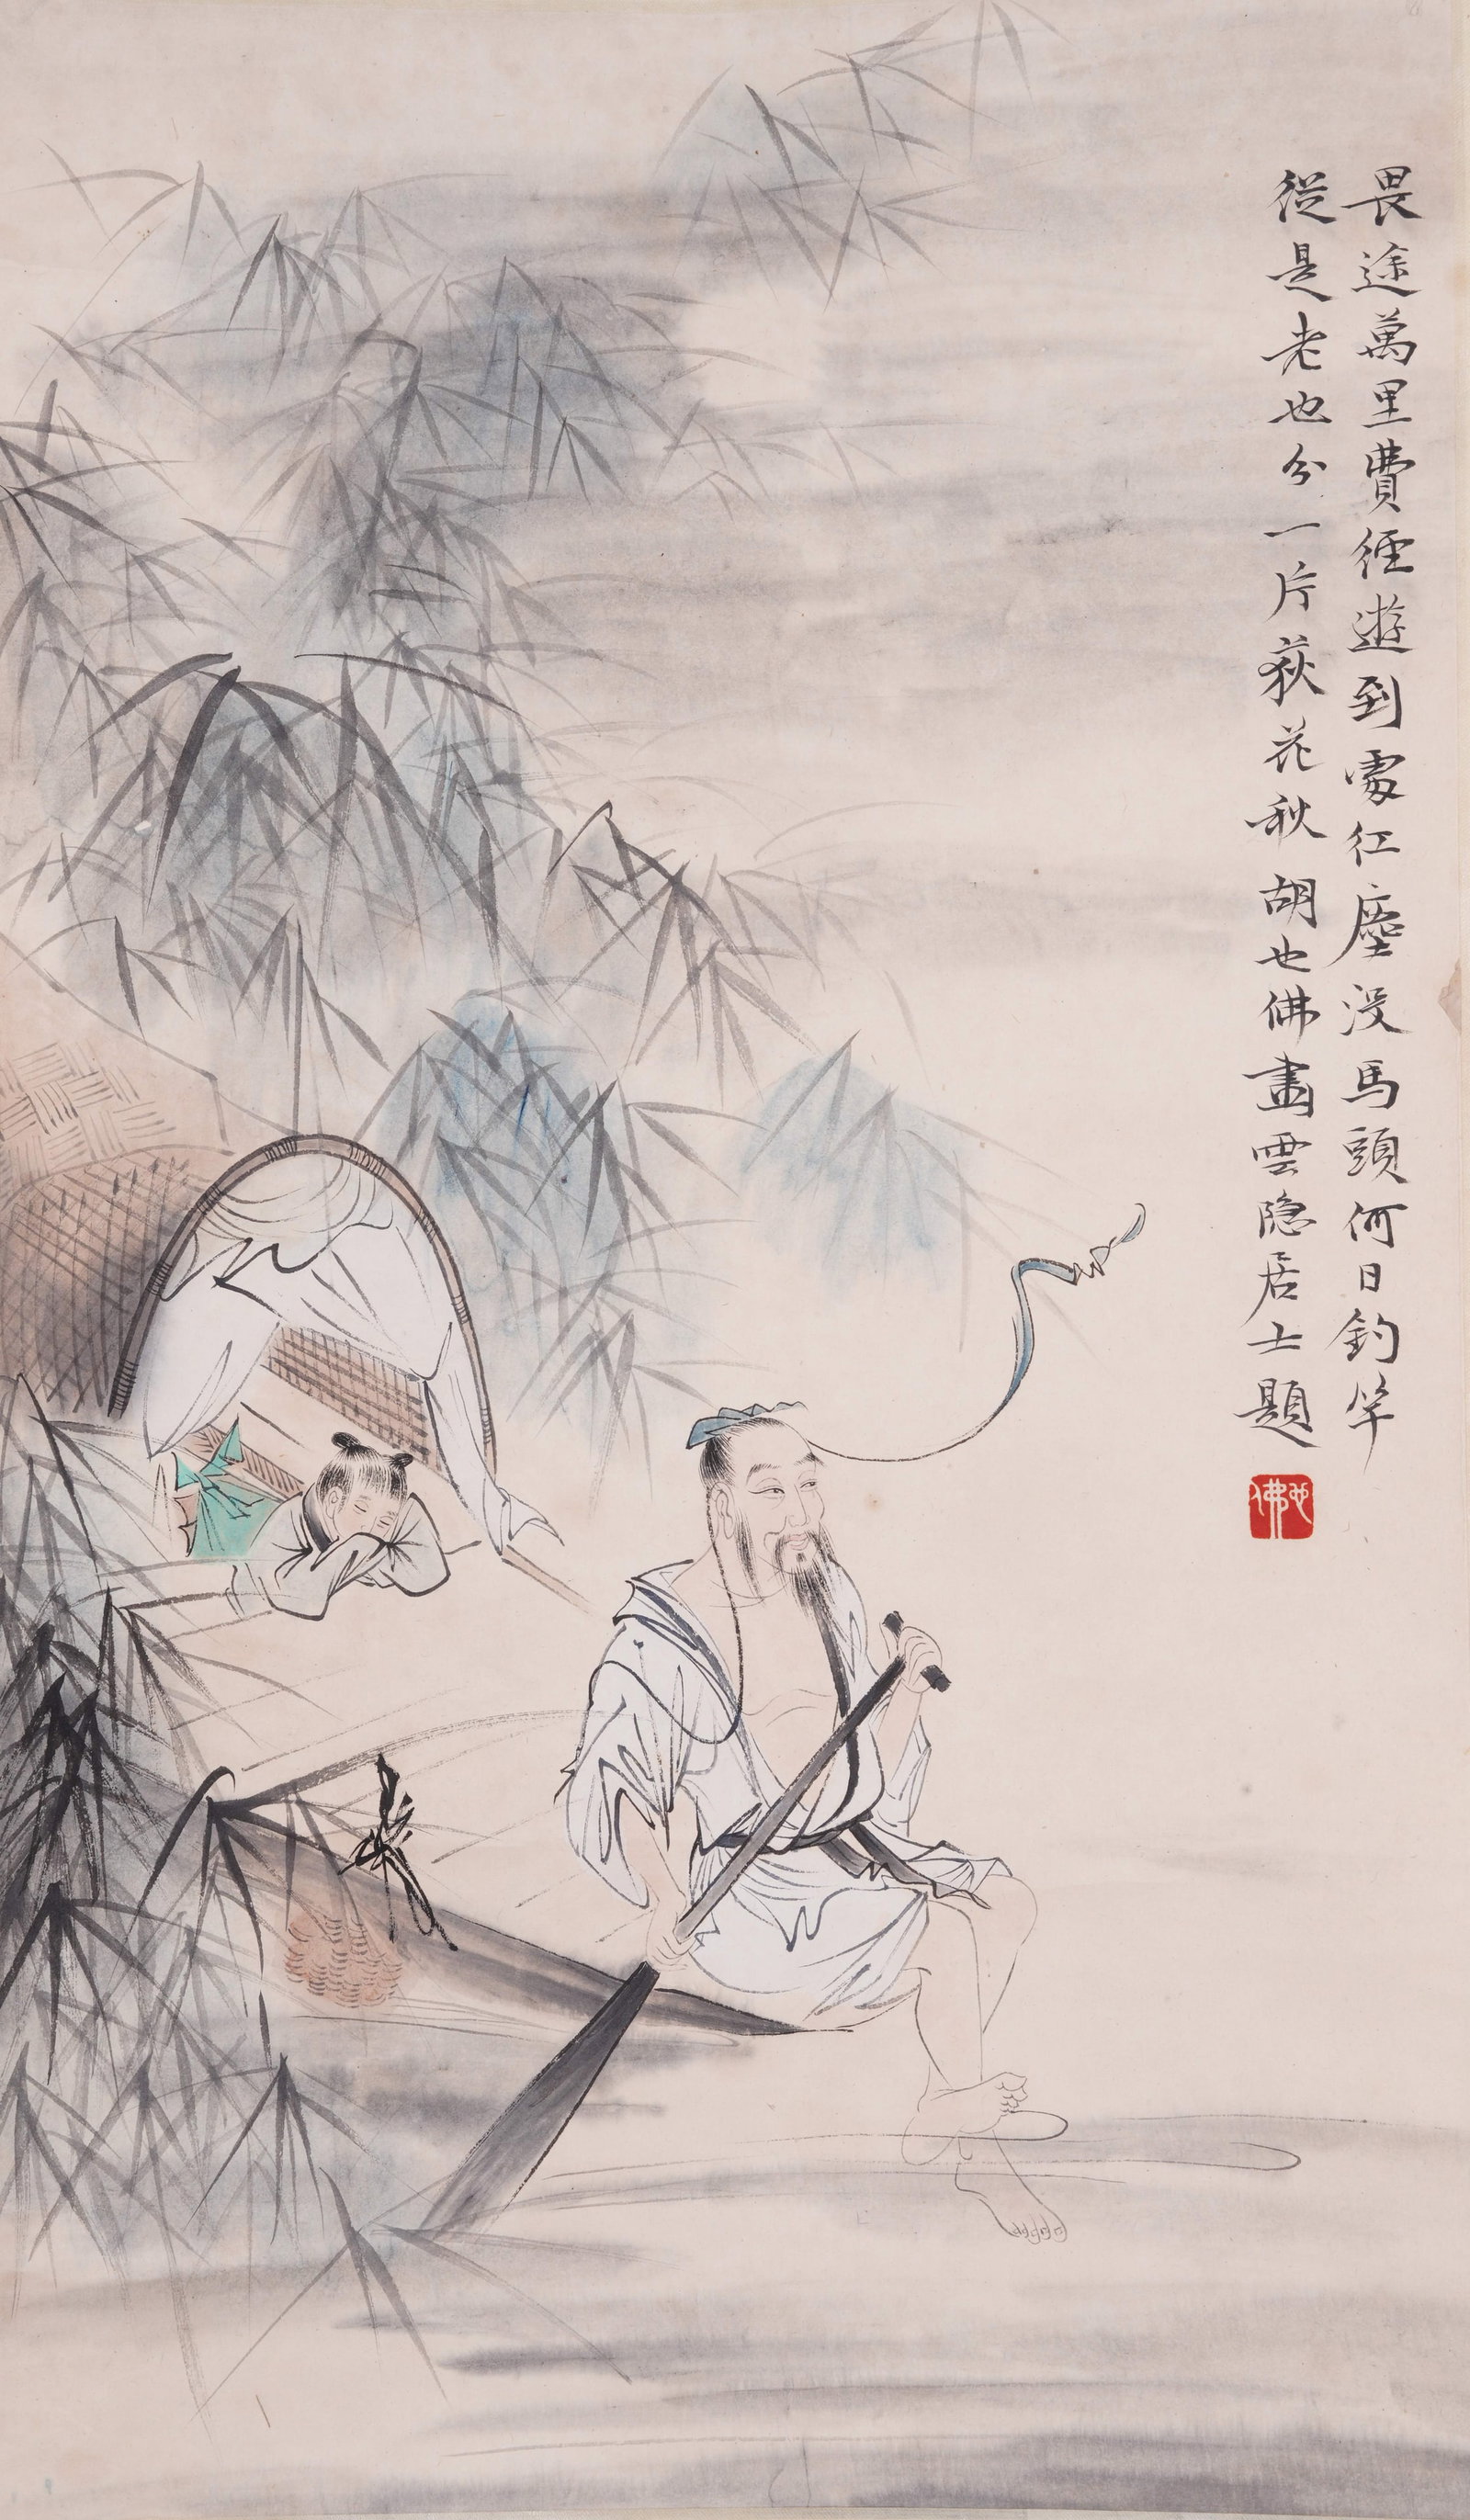 畏途萬里費經遊到處紅塵沒馬頭何日釣竿
從是老也分一片荻花秋 胡也佛畫雲隐居士題
也佛